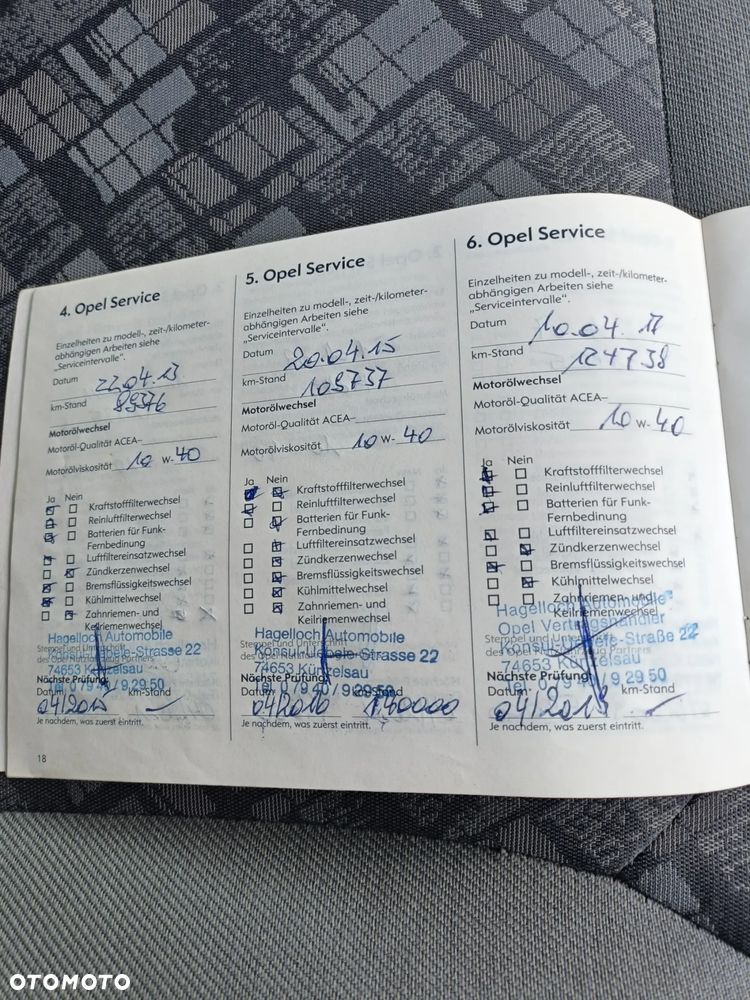 4. Opel Service
Einzelheiten zu modell-, zeit-/kilometer-
abhängigen Arbeiten siehe
„Serviceintervalle“.
Datum 22.04.13
km-Stand 89376
Motorölwechsel
Motoröl-Qualität ACEA–
Motorölviskosität 10 W- 40
Ja Nein
Kraftstofffilterwechsel
Reinluftfilterwechsel
Batterien für Funk-
Fernbedinung
Luftfiltereinsatzwechsel
Zündkerzenwechsel
Bremsflüssigkeitswechsel
Kühlmittelwechsel
Zahnriemen- und
Keilriemenwechsel
Hagelloch Automobile
Stempel und Unterschrift
des Opel Nutzfahrzeug Partners
74653 Künzelsau
Nächste Prüfung:
Datum km-Stand
Je nachdem, was zuerst eintritt.
18
5. Opel Service
Einzelheiten zu modell-, zeit-/kilometer-
abhängigen Arbeiten siehe
„Serviceintervalle“.
Datum 20.04.15
km-Stand 109737
Motorölwechsel
Motoröl-Qualität ACEA–
Motorölviskosität 10 W- 40
Ja Nein
Kraftstofffilterwechsel
Reinluftfilterwechsel
Batterien für Funk-
Fernbedinung
Luftfiltereinsatzwechsel
Zündkerzenwechsel
Bremsflüssigkeitswechsel
Kühlmittelwechsel
Zahnriemen- und
Keilriemenwechsel
Hagelloch Automobile
74653 Künzelsau
Nächste Prüfung:
Datum 04/2016 140000
Je nachdem, was zuerst eintritt.
6. Opel Service
Einzelheiten zu modell-, zeit-/kilometer-
abhängigen Arbeiten siehe
„Serviceintervalle“.
Datum 10.04.17
km-Stand 124738
Motorölwechsel
Motoröl-Qualität ACEA–
Motorölviskosität 10 W- 40
Ja Nein
Kraftstofffilterwechsel
Reinluftfilterwechsel
Batterien für Funk-
Fernbedinung
Luftfiltereinsatzwechsel
Zündkerzenwechsel
Bremsflüssigkeitswechsel
Kühlmittelwechsel
Zahnriemen- und
Keilriemenwechsel
Hagelloch Automobile
Opel Vertragshändler
74653 Künzelsau
Nächste Prüfung:
Datum km-Stand
Je nachdem, was zuerst eintritt.
OTOMOTO